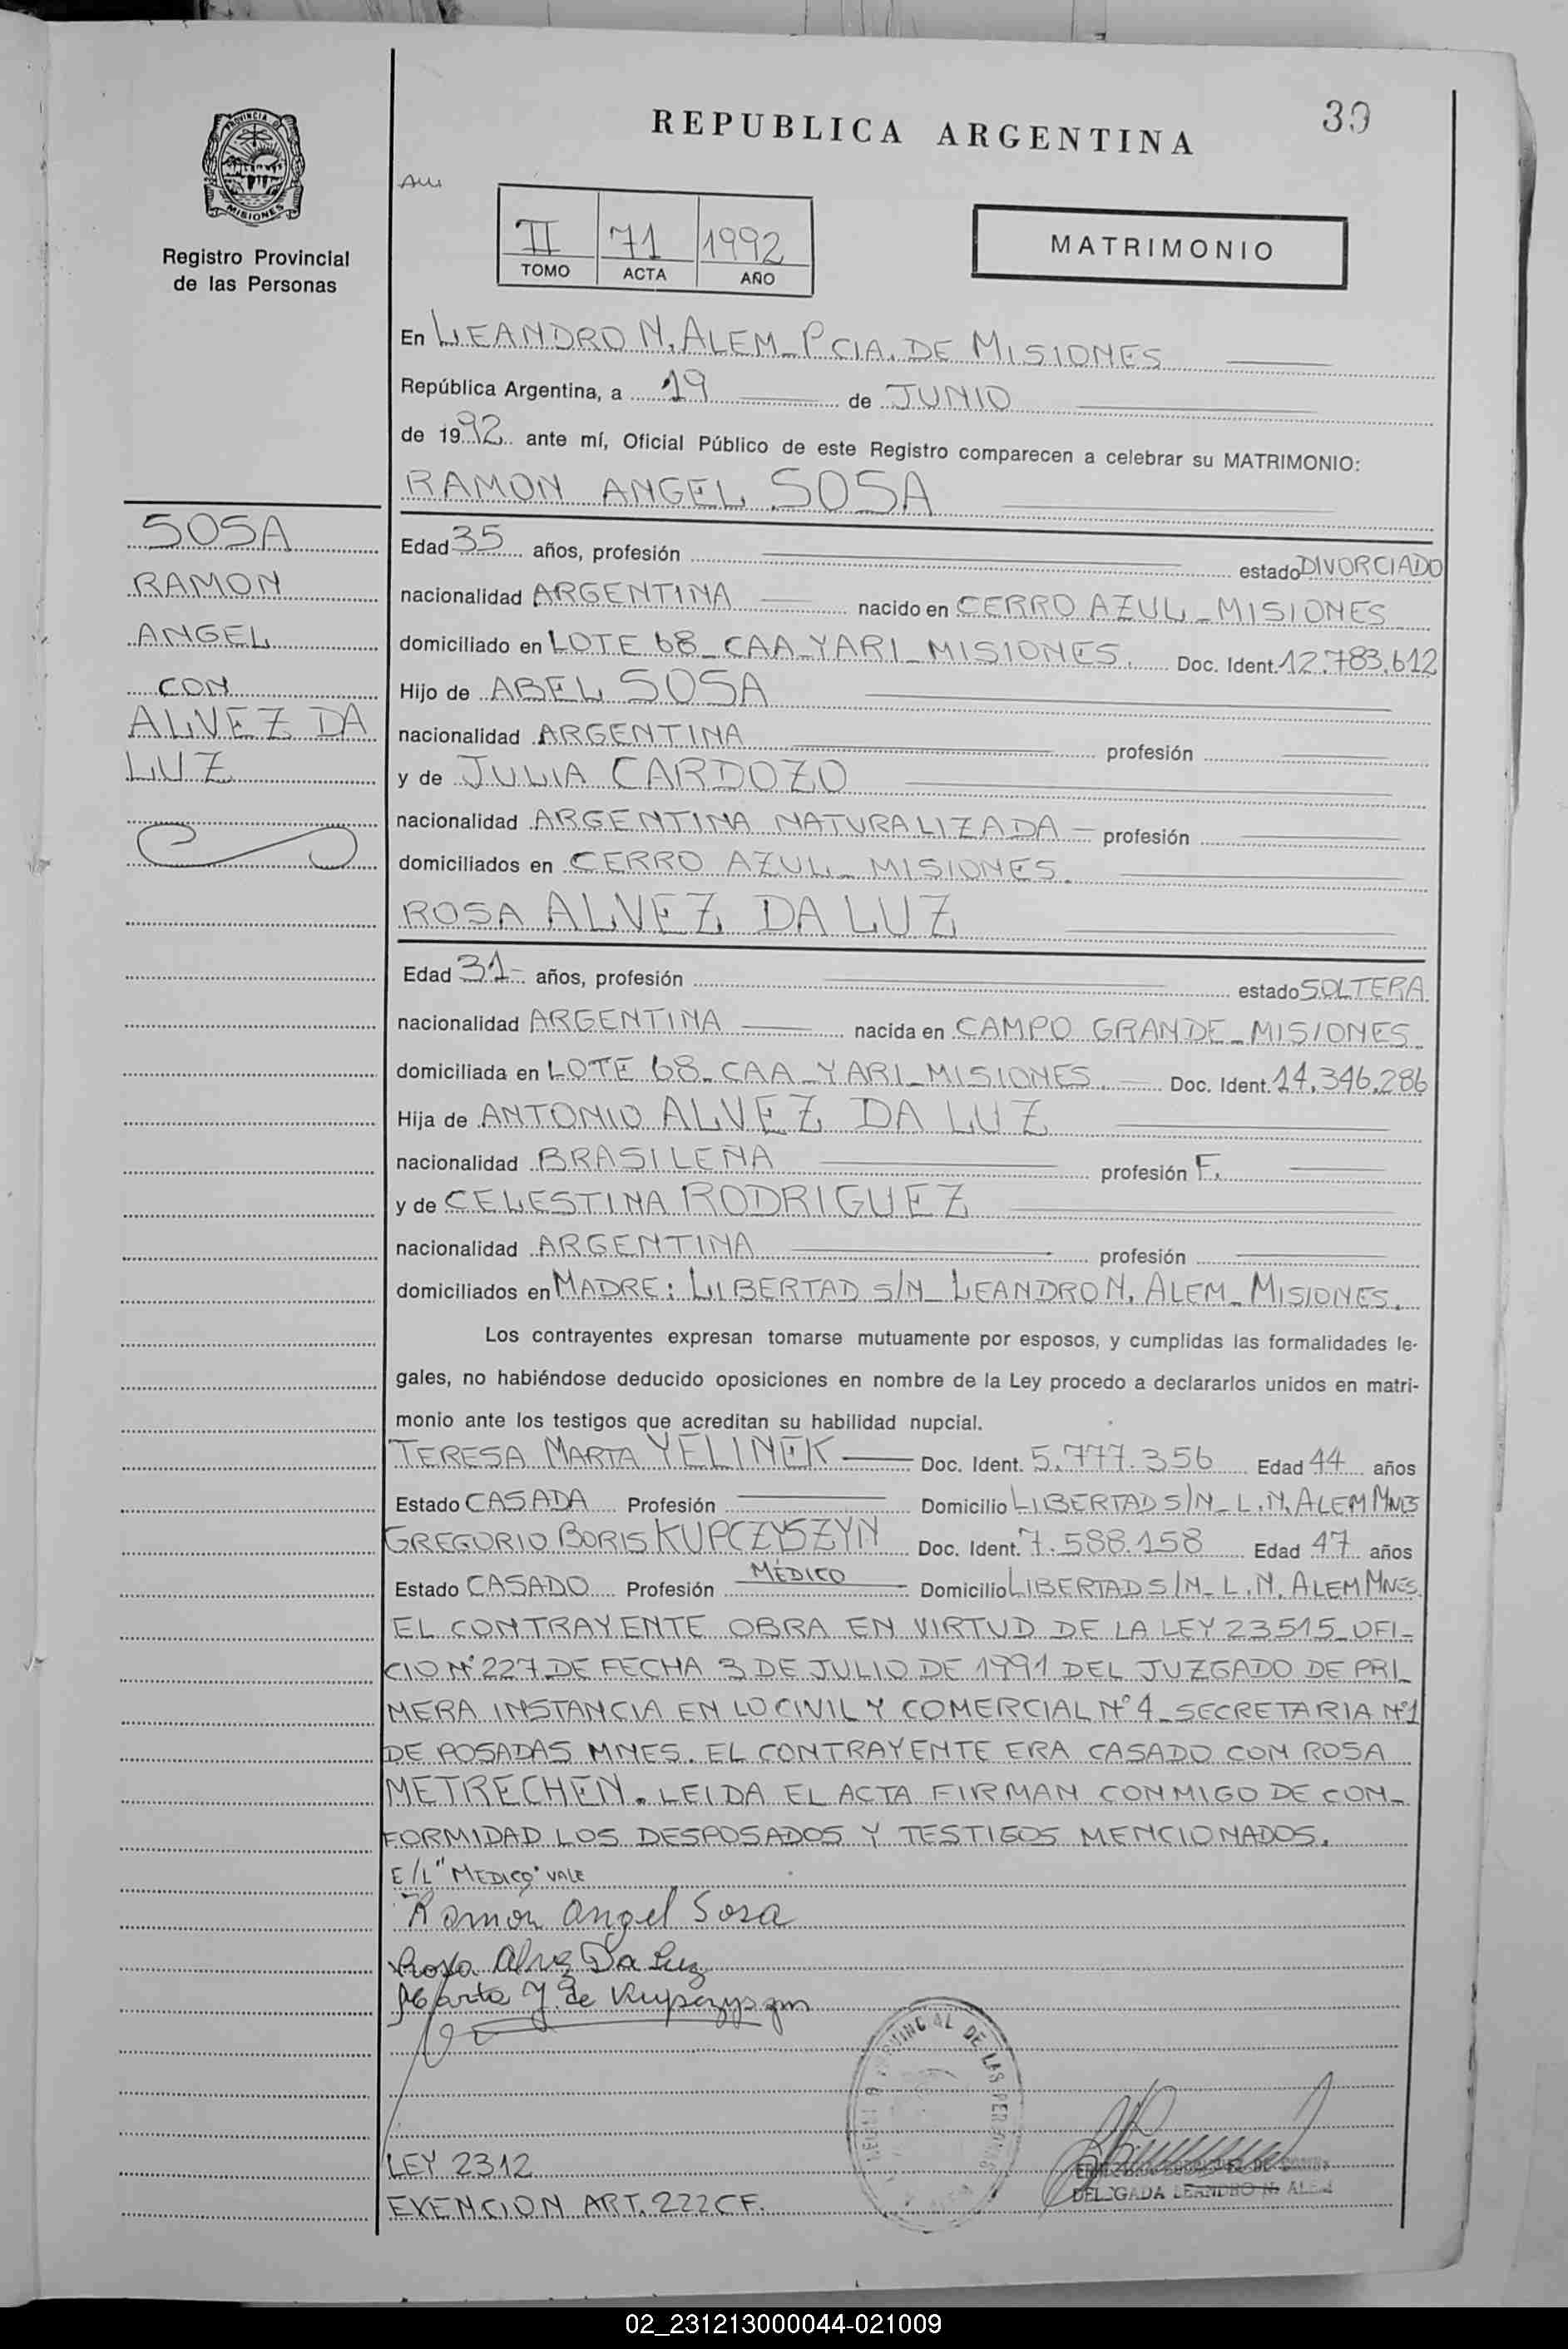 REPUBLICA ARGENTINA
39
PROVINCIA D
MISIONES
Registro Provincial
de las Personas
II 71 1992
TOMO ACTA AÑO
MATRIMONIO
En LEANDRO N. ALEM_PCIA. DE MISIONES
República Argentina, a 19 de JUNIO
de 1992 ante mí, Oficial Público de este Registro comparecen a celebrar su MATRIMONIO:
RAMON ANGEL SOSA
SOSA
RAMON
ANGEL
CON
ALVEZ DA
LUZ
Edad 35 años, profesión estado DIVORCIADO
nacionalidad ARGENTINA nacido en CERRO AZUL_MISIONES
domiciliado en LOTE 68_CAA_YARI_MISIONES. Doc. Ident. 12.783.612
Hijo de ABEL SOSA
nacionalidad ARGENTINA profesión
y de JULIA CARDOZO
nacionalidad ARGENTINA NATURALIZADA — profesión
domiciliados en CERRO AZUL_MISIONES.
ROSA ALVEZ DA LUZ
Edad 31- años, profesión estado SOLTERA
nacionalidad ARGENTINA nacida en CAMPO GRANDE_MISIONES
domiciliada en LOTE 68_CAA_YARI_MISIONES. Doc. Ident. 14.346.286
Hija de ANTONIO ALVEZ DA LUZ
nacionalidad BRASILEÑA profesión F.
y de CELESTINA RODRIGUEZ
nacionalidad ARGENTINA profesión
domiciliados en MADRE: LIBERTAD S/N_LEANDRO N. ALEM_MISIONES.
Los contrayentes expresan tomarse mutuamente por esposos, y cumplidas las formalidades le-
gales, no habiéndose deducido oposiciones en nombre de la Ley procedo a declararlos unidos en matri-
monio ante los testigos que acreditan su habilidad nupcial.
TERESA MARTA YELINEK Doc. Ident. 5.777.356 Edad 44 años
Estado CASADA Profesión Domicilio LIBERTAD S/N_L.N. ALEM MNES
GREGORIO BORIS KUPCZYSZYN Doc. Ident. 7.588.158 Edad 47 años
Estado CASADO Profesión MÉDICO Domicilio LIBERTAD S/N_L.N. ALEM MNES.
EL CONTRAYENTE OBRA EN VIRTUD DE LA LEY 23515_OFI_
CIO Nº 227 DE FECHA 3 DE JULIO DE 1991 DEL JUZGADO DE PRI_
MERA INSTANCIA EN LO CIVIL Y COMERCIAL Nº 4_SECRETARIA Nº1
DE POSADAS MNES. EL CONTRAYENTE ERA CASADO CON ROSA
METRECHEN. LEIDA EL ACTA FIRMAN CONMIGO DE CON_
FORMIDAD LOS DESPOSADOS Y TESTIGOS MENCIONADOS.
E/L "MEDICO" VALE
Ramón Angel Sosa
Rosa Alvez Da Luz
Marta Y. de Kupczyszyn
PROVINCIAL DE LAS PERSONAS
LEY 2312
EXENCION ART. 222 CF.
DELEGADA LEANDRO N. ALEM
02_231213000044-021009